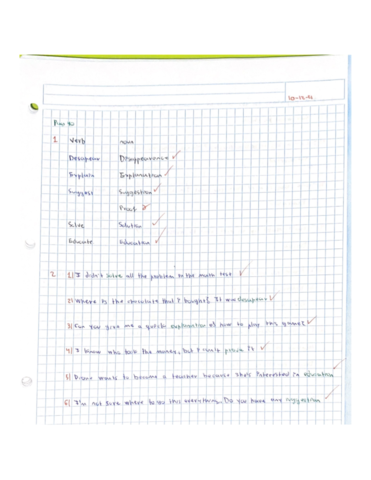 1. Verb noun
Disappearance
Explain Explanation
Suggest Suggestion
Proof
Solve Solution
Educate Education
2. 1) I didn't solve all the problem to the math test
2) Where is the chocolate that I bought? It
3) Can you give me a quick explanation of how to play this game?
4) I know who took the money, but I can't it
5) wants to become a teacher because she's interested in education
6) I'm not sure where to this everything. Do you have any suggestion